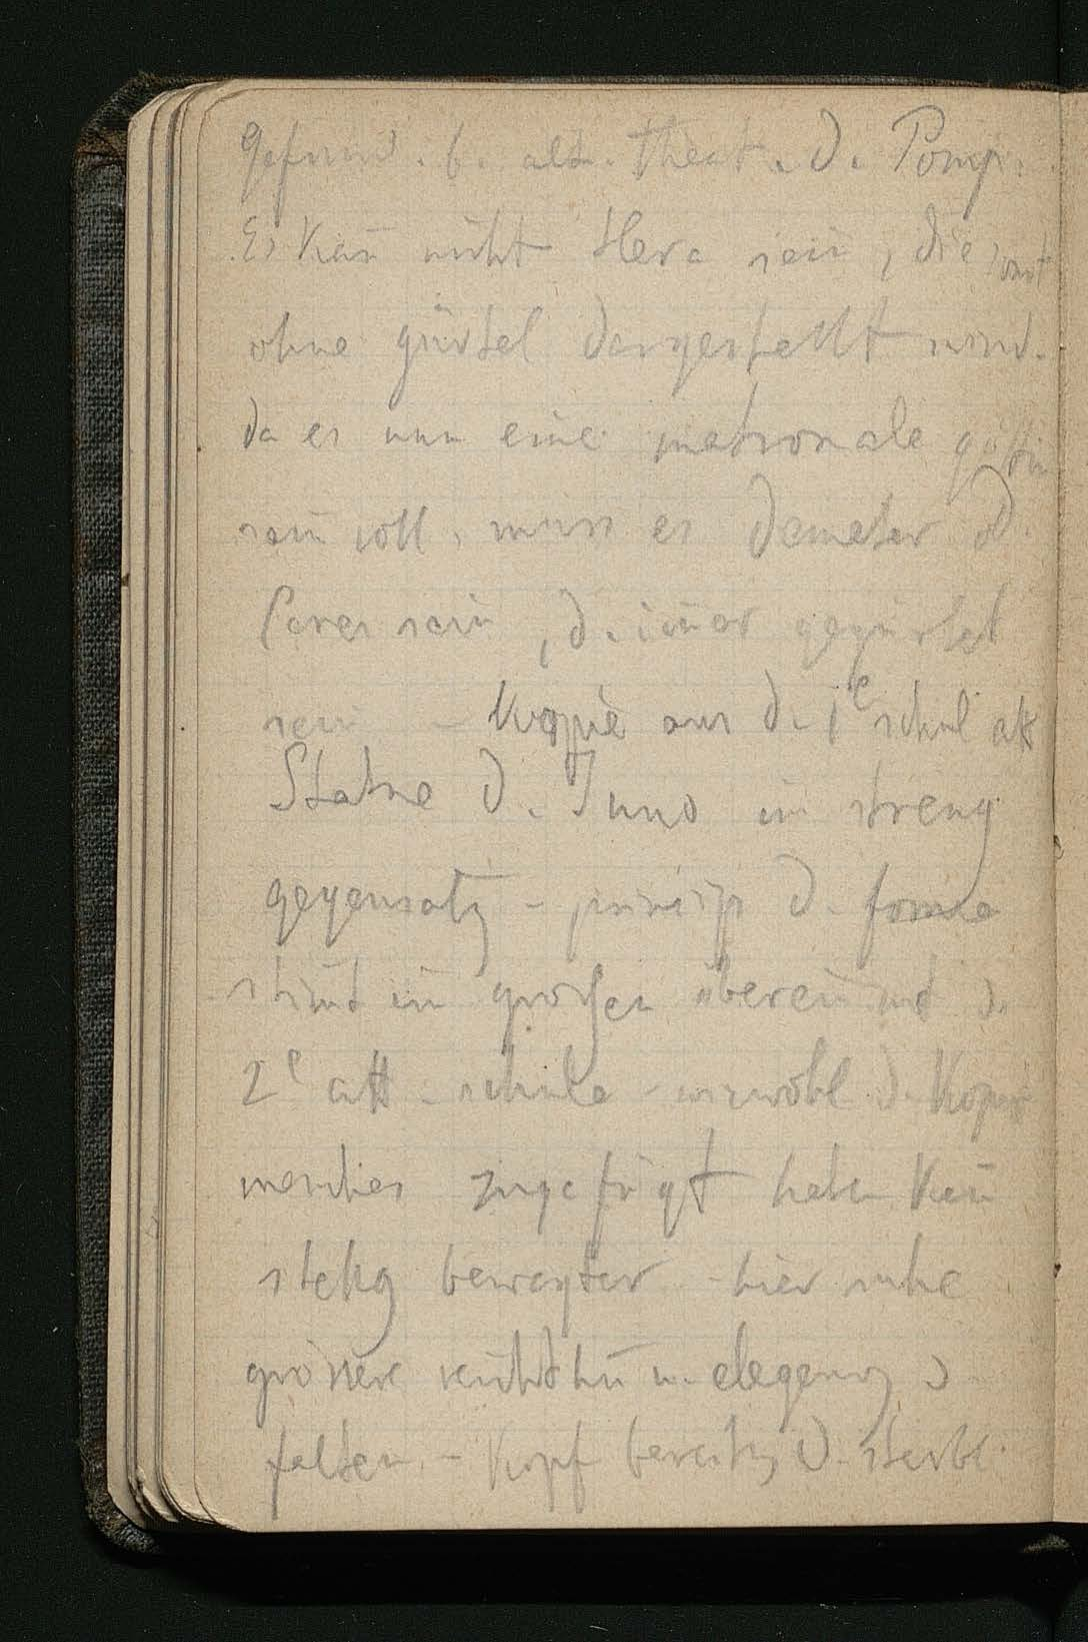 gefund. b. alt. Theat. d. Pomp.
Es kan̄ nicht Hera sein̄, die sonst
ohne gürtel dargestellt wird.
da es nun eine matronale göttin
sein̄ soll, muss es Demeter od.
Ceres sein, d. im̄er gegürtet
sein - Kopie aus d. 1e schul att
Statue d. Juno in streng
gegensatz - prinzip d. forme
stim̄t im großen überein̄ mit d.
2e att. schule - wiewohl d. Kopist
manches zugefügt haben kan̄
stellg bewegter - hier ruhe
grössere reichthum̄ u. eleganz d
falten - Kopf bereits d. sterbl.